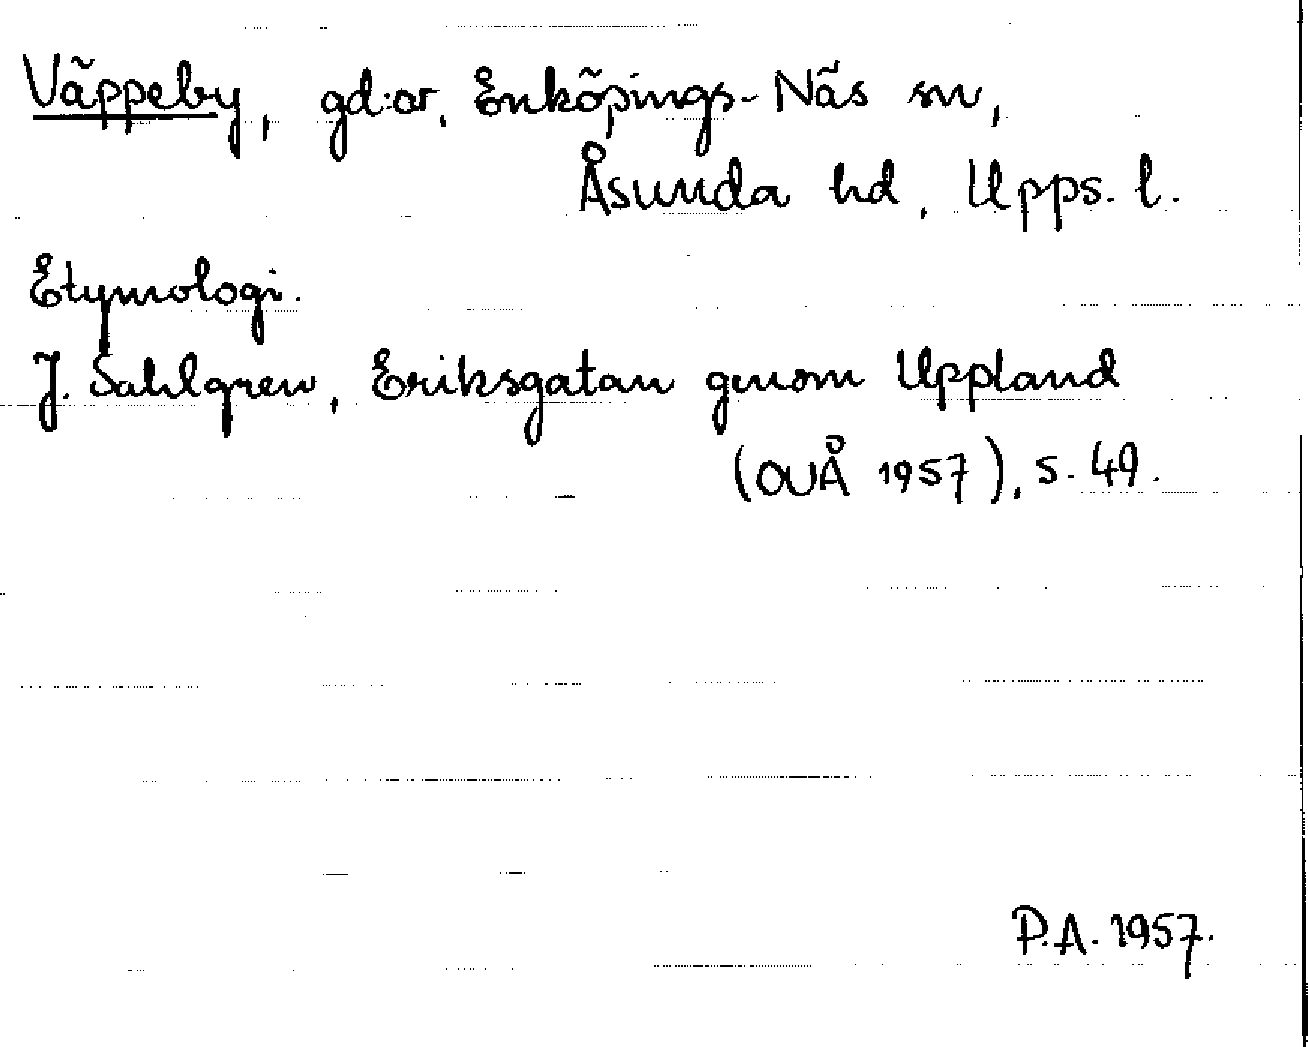 Väppeby, gd:ar, Enköpings-Näs sn,
Åsunda hd, Upps. l.
Etymologi.
J. Sahlgren, Eriksgatan genom Uppland
(OUÅ 1957), s. 49.
P.A. 1957.